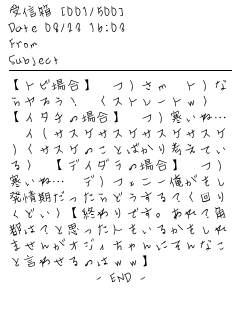 受信箱 [001/500]
Date 08/23 16:03
From
Subject
【トビ場合】 つ)さm ト)な
らヤろう! (ストレートw)
【イタチの場合】 つ)寒いね…
イ(サスケサスケサスケサスケ
)(サスケのことばかり考えてい
る) 【デイダラの場合】 つ)
寒いね… デ)フェニー俺がもし
発情期だったらどうするて(回り
くどい)【終わりです。あれて角
都はてと思った人もいるかもしれ
ませんがオジイちゃんにそんなこ
と言わせるのはww】
- END -